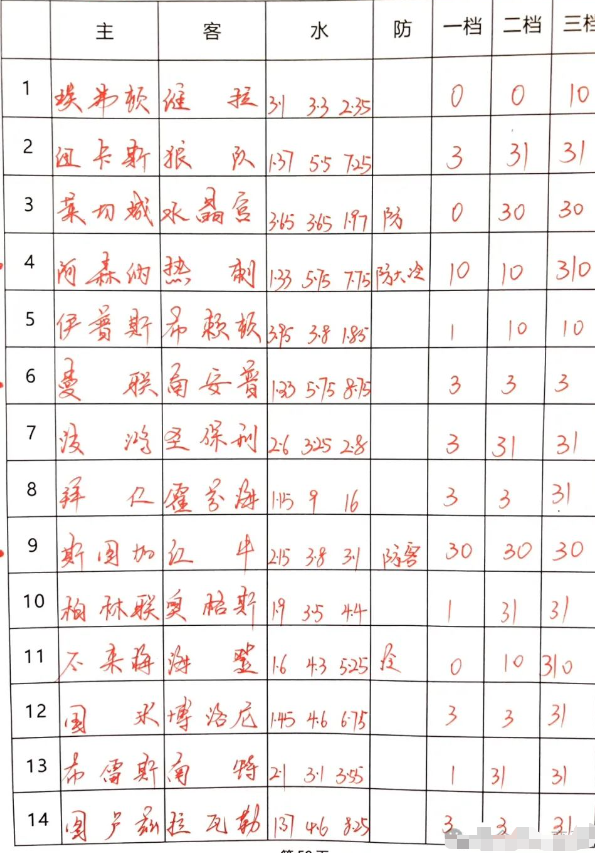 主 客 水 防 一档 二档 三档
1 埃弗顿 维拉 3·1 3·3 2·35 0 0 10
2 纽卡斯 狼队 1·37 5·5 7·25 3 31 31
3 莱切城 水晶宫 3·65 3·65 1·97 防 0 30 30
4 阿森纳 热刺 1·33 5·75 7·75 防大冷 10 10 310
5 伊普斯 布赖顿 3·95 3·8 1·85 1 10 10
6 曼联 南安普 1·33 5·75 8·75 3 3 3
7 波鸿 圣保利 2·6 3·25 2·8 3 31 31
8 拜仁 霍芬海 1·15 9 16 3 3 31
9 斯图加 红牛 2·15 3·8 3·1 防客 30 30 30
10 柏林联 奥格斯 1·9 3·5 4·4 1 31 31
11 不来梅 海登 1·6 4·3 5·25 0 10 310
12 国米 博洛尼 1·45 4·6 6·75 3 3 31
13 布雷斯 南特 2·1 3·1 3·55 1 31 31
14 图卢兹 拉瓦勒 1·37 4·6 8·25 3 3 31